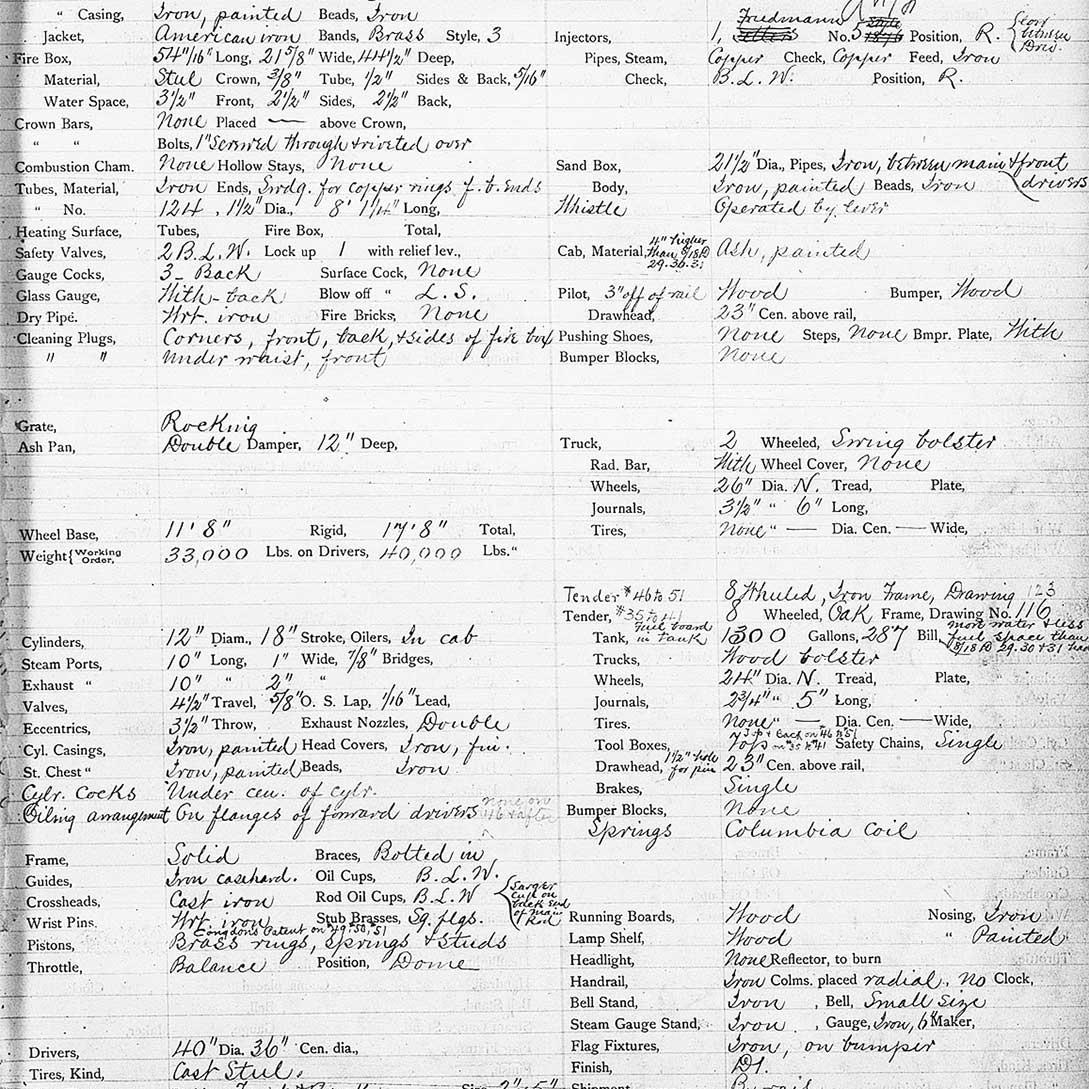 " Casing, Iron, painted Beads, Iron
Jacket, American iron Bands, Brass Style, 3
Fire Box, 54 11/16" Long, 21 5/8" Wide, 44 1/2" Deep,
Material, Steel Crown, 3/8" Tube, 1/2" Sides & Back, 5/16"
Water Space, 3 1/2" Front, 2 1/2" Sides, 2 1/2" Back,
Crown Bars, None Placed — above Crown,
" " Bolts, 1" Screwed through & riveted over
Combustion Cham. None Hollow Stays, None
Tubes, Material, Iron Ends, Swdg. for copper rings f. b. ends
" No. 124, 1 1/2" Dia., 8' 1 1/4" Long,
Heating Surface, Tubes, Fire Box, Total,
Safety Valves, 2 B.L.W. Lock up 1 with relief lev.,
Gauge Cocks, 3 - Back Surface Cock, None
Glass Gauge, With - back Blow off " L.S.
Dry Pipe. Wrt. iron Fire Bricks, None
Cleaning Plugs, Corners, front, back, & sides of fire box
" " Under waist, front
Grate, Rocking
Ash Pan, Double Damper, 12" Deep,
Wheel Base, 11' 8" Rigid, 17' 8" Total,
Weight { Working Order, 33,000 Lbs. on Drivers, 40,000 Lbs. "
Cylinders, 12" Diam., 18" Stroke, Oilers, In cab
Steam Ports, 10" Long, 1" Wide, 7/8" Bridges,
Exhaust " 10" " 2" "
Valves, 4 1/2" Travel, 5/8" O. S. Lap, 1/16" Lead,
Eccentrics, 3 1/2" Throw, Exhaust Nozzles, Double
Cyl. Casings, Iron, painted Head Covers, Iron, fin.
St. Chest " Iron, painted Beads, Iron
Cylr. Cocks Under cen. of cylr.
Oiling arrangement On flanges of forward drivers none on 46 & after
Frame, Solid Braces, Bolted in
Guides, Iron casehard. Oil Cups, B.L.W.
Crossheads, Cast iron Rod Oil Cups, B.L.W { Larger cup on back end of main Rod
Wrist Pins. Wrt. iron Stub Brasses, Sq. flgs.
Congdons Patent on 49, 50, 51
Pistons, Brass rings, springs & studs
Throttle, Balance Position, Dome
Drivers, 40" Dia. 36" Cen. dia.,
Tires, Kind, Cast Steel.
Friedmann
Injectors, 1, No. 5 Position, R.
Pipes, Steam, Copper Check, Copper Feed, Iron
Check, B.L.W. Position, R.
Sand Box, 21 1/2" Dia., Pipes, Iron, between main & front drivers
Body, Iron, painted Beads, Iron
Whistle Operated by lever
Cab, Material, 4" higher than 8/18 D 29.30.31 Ash, painted
Pilot, 3" off of rail Wood Bumper, Wood
Drawhead, 23" Cen. above rail,
Pushing Shoes, None Steps, None Bmpr. Plate, With
Bumper Blocks, None
Truck, 2 Wheeled, Swing bolster
Rad. Bar, With Wheel Cover, None
Wheels, 26" Dia. N. Tread, Plate,
Journals, 3 1/2" " 6" Long,
Tires, None " — Dia. Cen. — Wide,
Tender #46 to 51 8 Wheeled, Iron Frame, Drawing 123
Tender, #35 to 41 8 Wheeled, Oak Frame, Drawing No. 116
Tank, fuel board in tank 1300 Gallons, 287 Bill, more water & less fuel space than 8/18 D 29.30 & 31 had
Trucks, Wood bolster
Wheels, 24" Dia. N. Tread, Plate,
Journals, 2 3/4" " 5" Long,
Tires. None " — Dia. Cen. — Wide,
Tool Boxes, Top on 35 to 41 Safety Chains, Single
Drawhead, 1 1/2" hole for pin 23" Cen. above rail,
Brakes, Single
Bumper Blocks, None
Springs Columbia coil
Running Boards, Wood Nosing, Iron
Lamp Shelf, Wood " Painted
Headlight, None Reflector, to burn
Handrail, Iron Colms. placed radial, No Clock,
Bell Stand, Iron, Bell, Small Size
Steam Gauge Stand, Iron, Gauge, Iron, 6" Maker,
Flag Fixtures, Iron, on bumper
Finish, D1.
Shipment